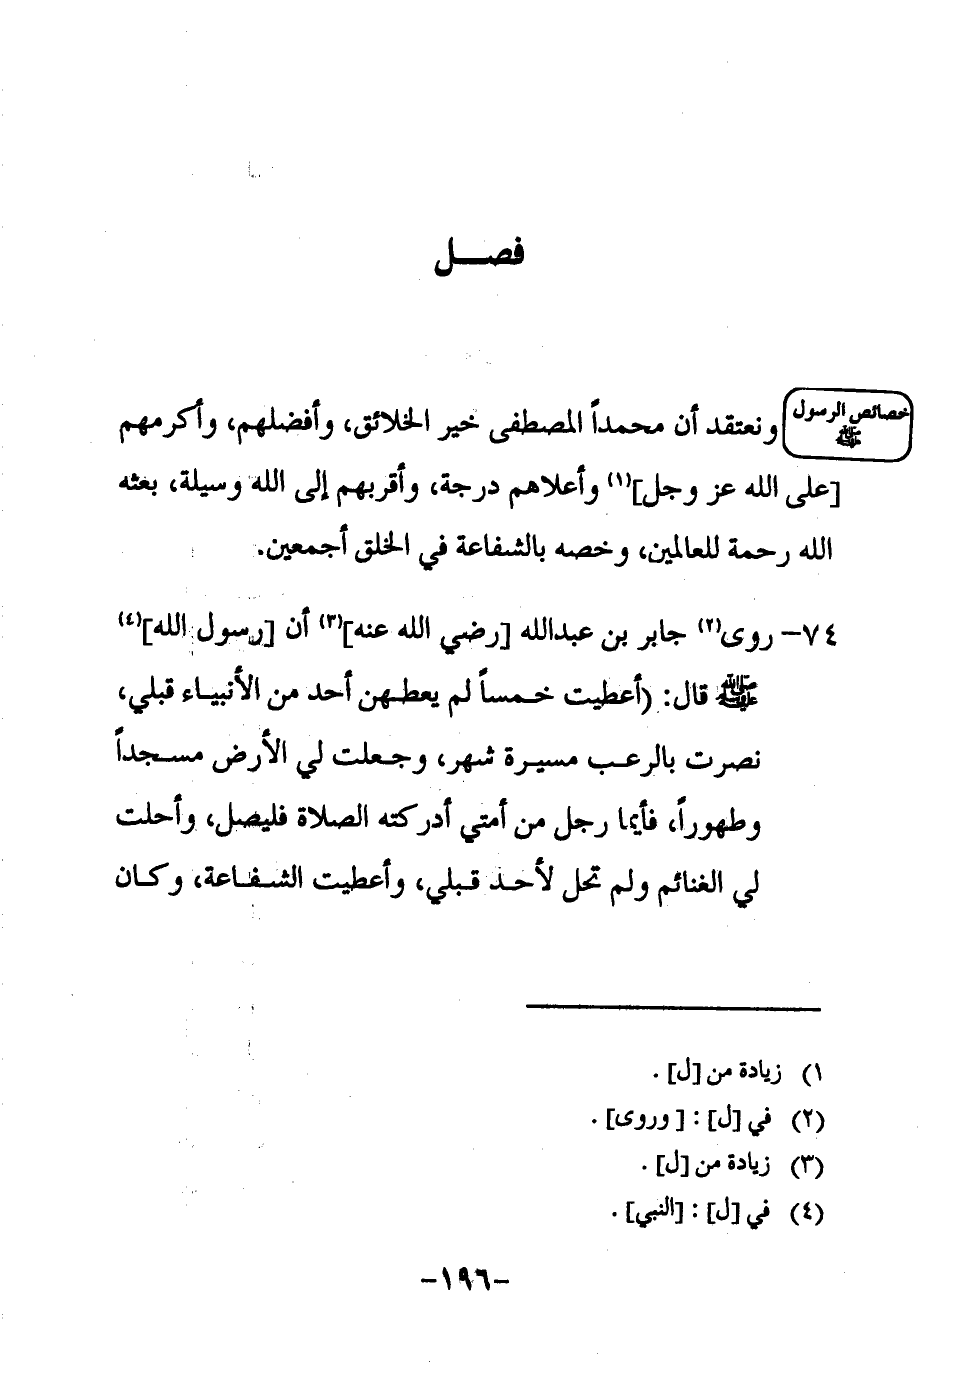 فصـــل
خصائص الرسول
ﷺ
ونعتقد أن محمداً المصطفى خير الخلائق، وأفضلهم، وأكرمهم
[على الله عز وجل](١) وأعلاهم درجة، وأقربهم إلى الله وسيلة، بعثه
الله رحمة للعالمين، وخصه بالشفاعة في الخلق أجمعين.
٧٤- روى(٢) جابر بن عبدالله [رضي الله عنه](٣) أن [رسول الله](٤)
ﷺ قال: (أعطيت خمساً لم يعطهن أحد من الأنبياء قبلي،
نصرت بالرعب مسيرة شهر، وجعلت لي الأرض مسجداً
وطهوراً، فأيما رجل من أمتي أدركته الصلاة فليصل، وأحلت
لي الغنائم ولم تحل لأحد قبلي، وأعطيت الشفاعة، وكان
١) زيادة من [ل] .
(٢) في [ل] : [وروى] .
(٣) زيادة من [ل] .
(٤) في [ل] : [النبي] .
-١٩٦-